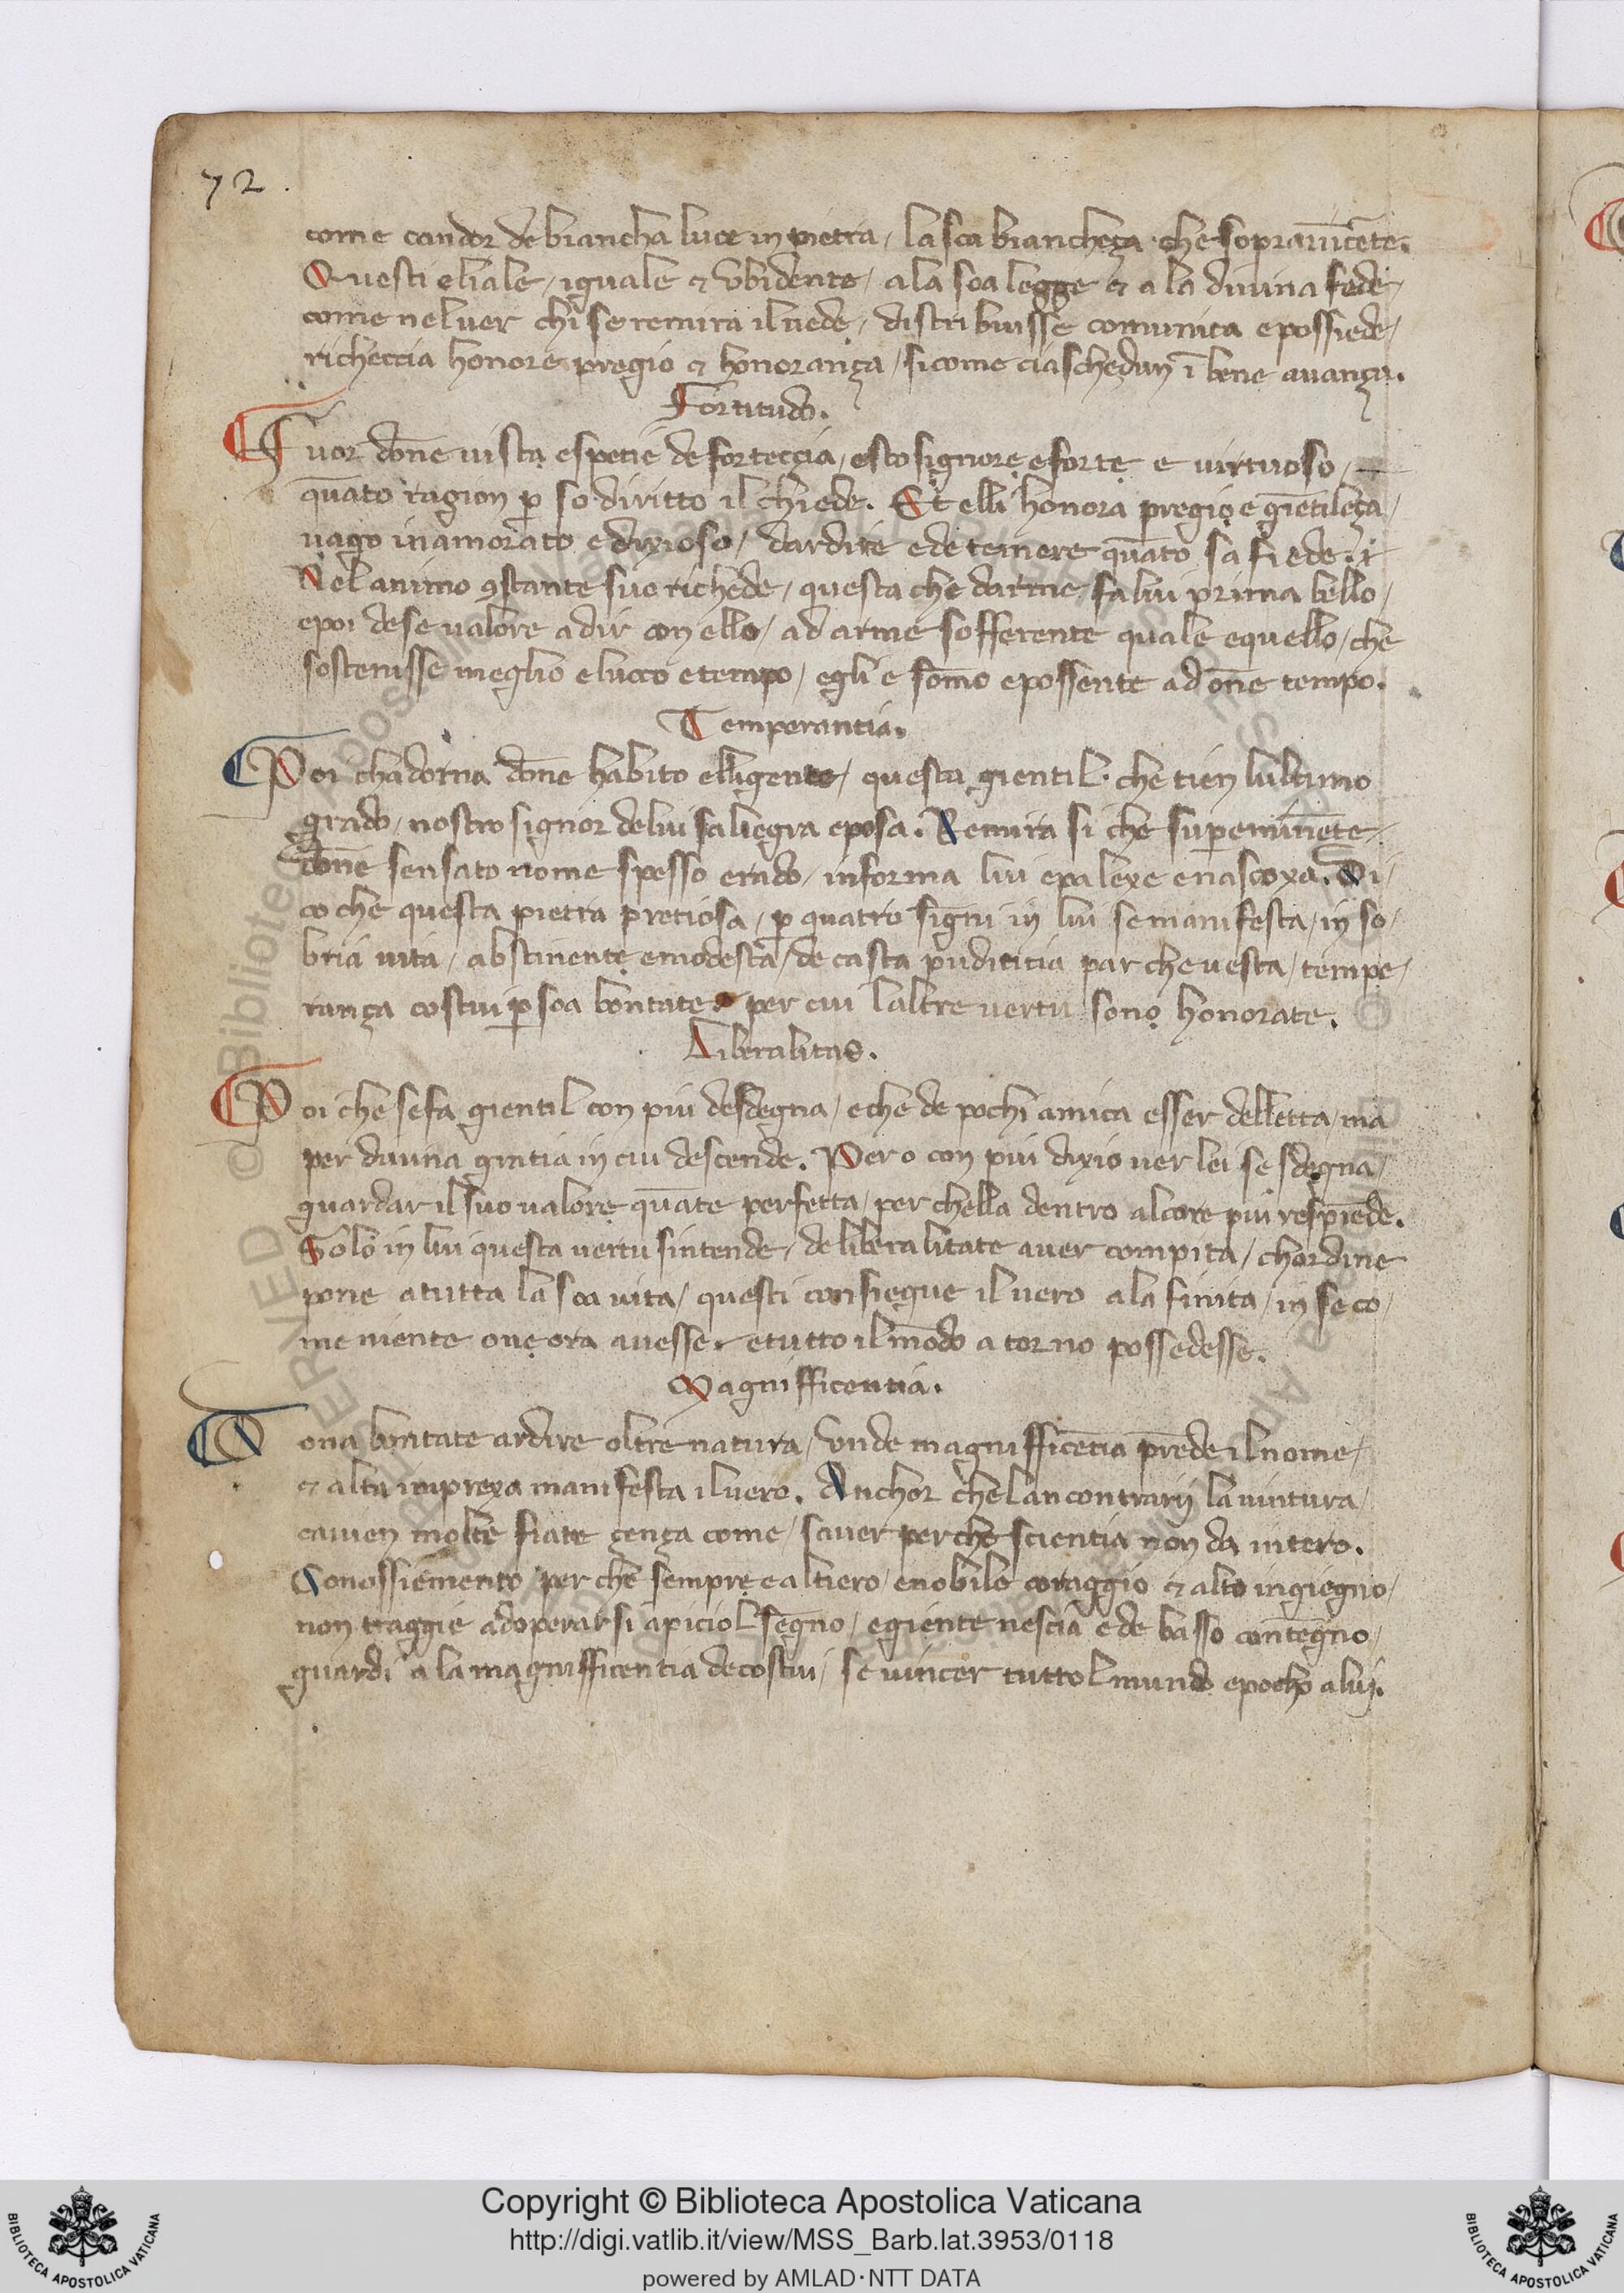 72.
come candor de biancha luce in pietra / la sca biancheça che sopraniicēte.
Questi e liale / iguale & vbidente / a la soa legge & a la diuina fede /
come nel uer chi se remira il uede / distribuisse comunica e possiede /
richeccia honore pregio & honorança / si come ciaschedun ī bene auança.
Fortitudo.
Fuor dōne uista e spetie de forteccia / esto signore e forte e uirtuoso /
quāto ragion ꝑ so diritto il chiede. Et elli honora pregio e giētileça /
uago inamorato e dixioso / dardire e de temere quāto sa fiede.
Nel animo ꝯstante suo richede / questa che darme fa lui prima bello /
e poi de se ualore a dir con ello / ad arme sofferente quale e quello / che
sostenisse meglio e lucco e tempo / egli e sōmo e possente ad ōne tempo.
Temperantia.
Poi chadorna dōne habito elligente / questa gientil che tien lultimo
grado / nostro signor de lui sallegra e posa. Remira si che supeminēte /
dōne sensato nome spesso e rado / informa lui e palexe e nascoxa. Di /
co che questa pietra pretiosa / ꝑ quatro signi in lui se manifesta / in so /
bria uita / abstinente e modesta / de casta puditicia par che uesta / tempe /
rança costui ꝑ soa bontate per cui laltre uertu sono honorate.
Liberalitas.
Poi che se fa gientil con piu desdegna / e che de pochi amica esser delletta / ma
per diuina gratia in cui descende. Pero con piu dixio uer lei se sdegna /
guardar il suo ualore quāte perfetta / per chella dentro al core piu respiēde.
Solo in lui questa uertu sintende / de liberalitate auer compita / chordine
pone a tutta la soa uita / questi consiegue il uero a la finita / in se co /
me niente oue ora auesse e tutto il mōdo a torno possedesse.
Magnifficentia.
ona bontate ardire oltre natura / vnde magnifficētia prēde il nome /
& alta imprexa manifesta il uero. Anchor chel an contrarij la uintura /
cauien molte fiate çença come / sauer perche scientia non da intero.
Conossiemento per che sempre e altiero / e nobile coraggio & alto ingiegno /
non traggie adoperarsi a piciol segno / e giente nescia e de basso contegno /
guardi a la magnifficentia de costui / se uincer tutto l mundo e pocho a lui.
Copyright © Biblioteca Apostolica Vaticana
http://digi.vatlib.it/view/MSS_Barb.lat.3953/0118
powered by AMLAD·NTT DATA
BIBLIOTECA APOSTOLICA VATICANA
BIBLIOTECA APOSTOLICA VATICANA